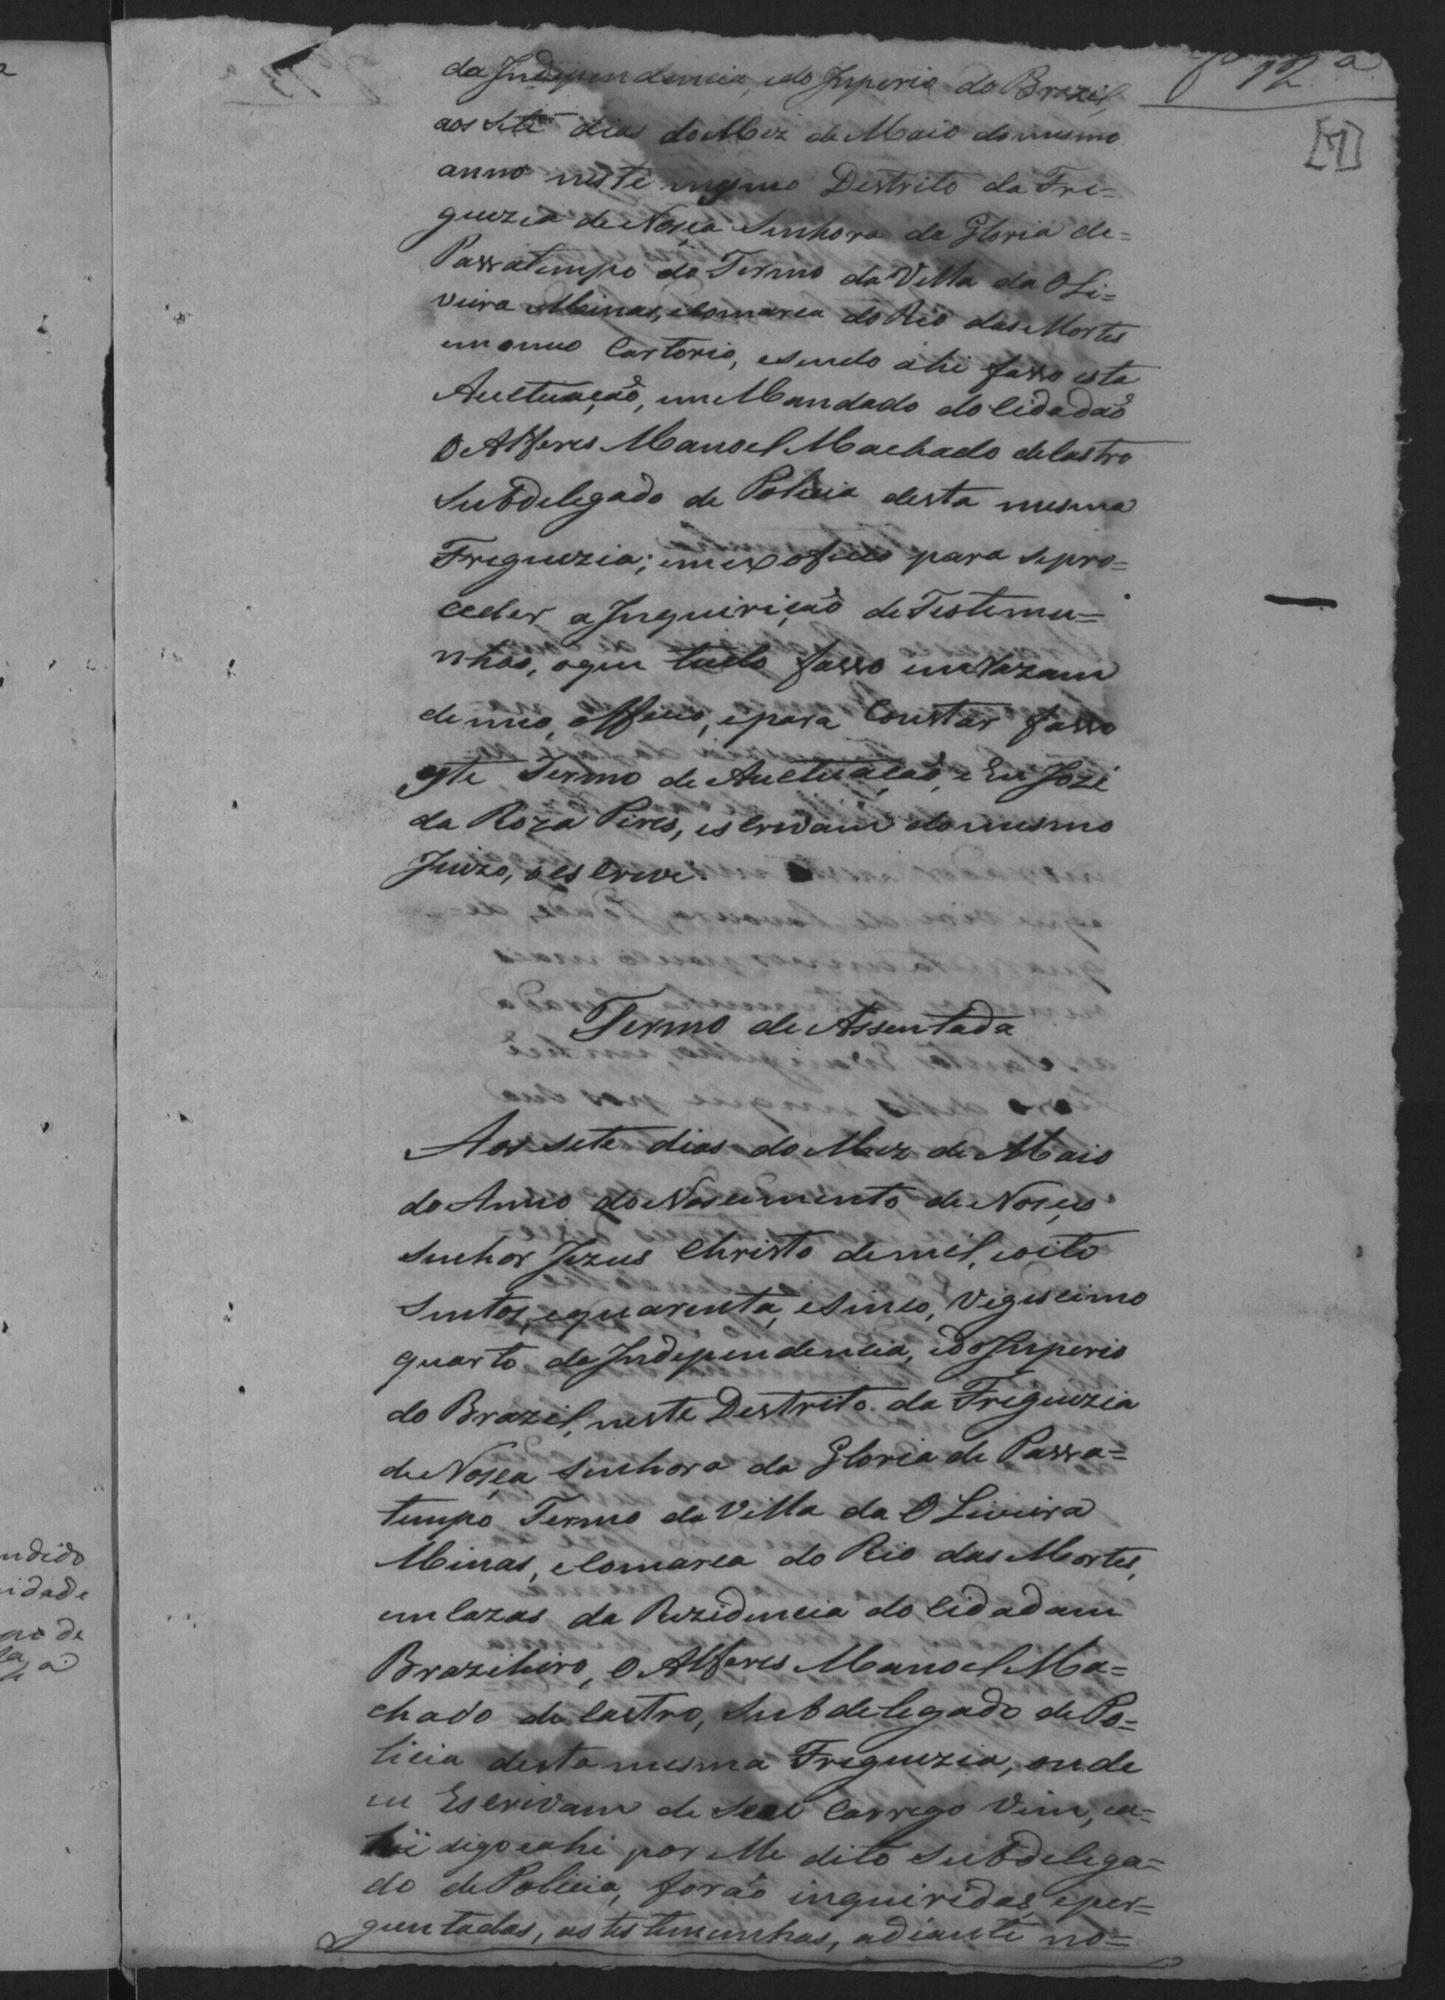 12ª
[7]
da Independencia, e do Imperio do Brazil,
aos sete dias do Mez de Maio do mesmo
anno neste mesmo Destrito da Fre=
guezia de Nosça Senhora da Gloria de=
Passatempo do Termo da Villa da Oli=
veira Minas, e Comarca do Rio das Mortes
em o meo Cartorio, e sendo ahi fasso esta
Auctuação, em Mandado do Cidadaõ
O Alferes Manoel Machado de Castro
Subdelegado de Policia desta mesma
Freguezia; em ex oficio para se pro=
ceder a Inquirição de Testemu=
nhas, o que tudo fasso em Razam
de meo, officio, e para Constar fasso
este Termo de Auctuação, e Eu José
da Roza Pires, escrivam do mesmo
Juizo, o escrevi.
Termo de Assentada
Aos sete dias do Mez de Maio
do Anno do Nascimento de Nosço
Senhor Jezus Christo de mil, oito
Sentos, e quarenta, e sinco, Vigescimo
quarto da Independencia, e do Imperio
do Brazil, neste Destrito da Freguezia
de Nosça Senhora da Gloria de Passa=
tempo Termo da Villa da Oliveira
Minas, e Comarca do Rio das Mortes,
em Cazas da Rezidencia do Cidadam
Brazileiro, O Alferes Manoel Ma=
chado de Castro, Subdelegado de Po=
licia desta mesma Freguezia, onde
eu Escrivam de seu Carrego Vim, ea=
hi digo e ahi por elle dito Subdelega=
do de Policia, foraõ inquiridas, e per=
guntadas, as testemunhas, adiante no=
ndido
idade
de